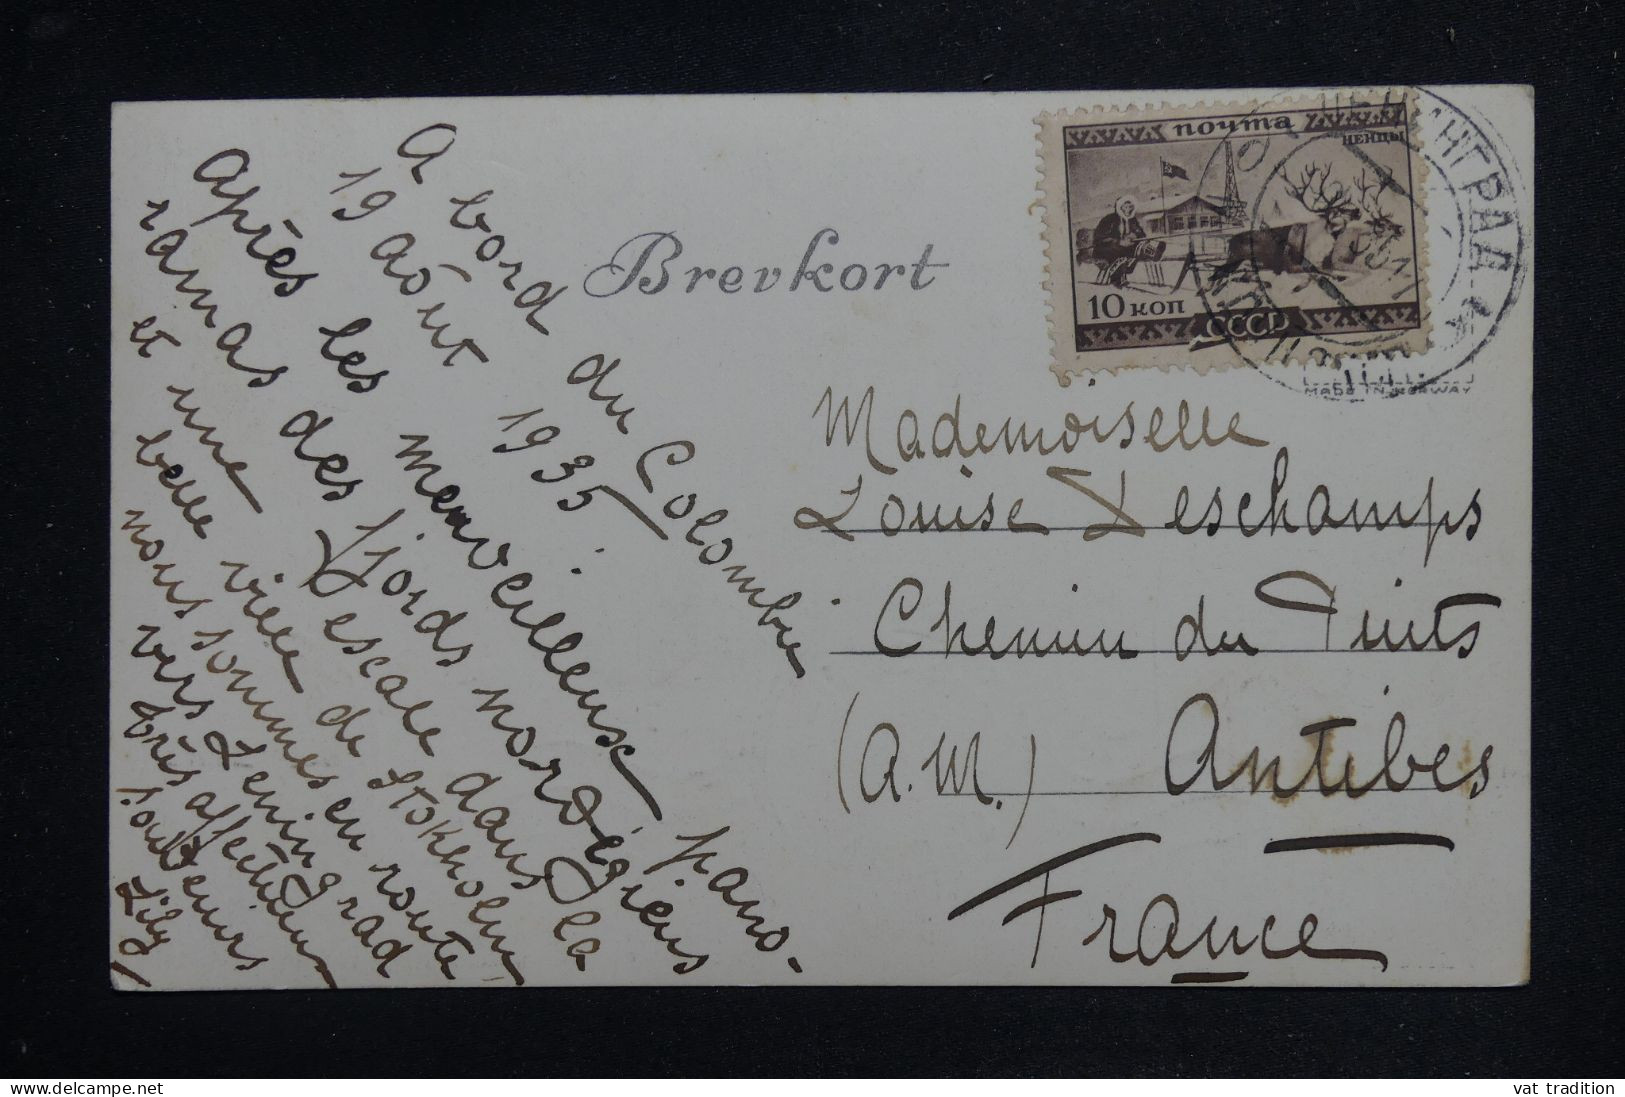 A bord du Colombie
19 août 1935.
Après les merveilleuse pano-
ramas des fjords norvégiens
et une escale dans la
belle ville de Stokholm,
nous sommes en route
vers Leningrad
très affectueux
souvenirs
Lily
Brevkort
почта
ненцы
10 коп
СССР
ЛЕНИНГРАД
MADE IN NORWAY
Mademoiselle
Louise Deschamps
Chemin du Puits
(A.M.) Antibes
France
vat tradition
www.delcampe.net